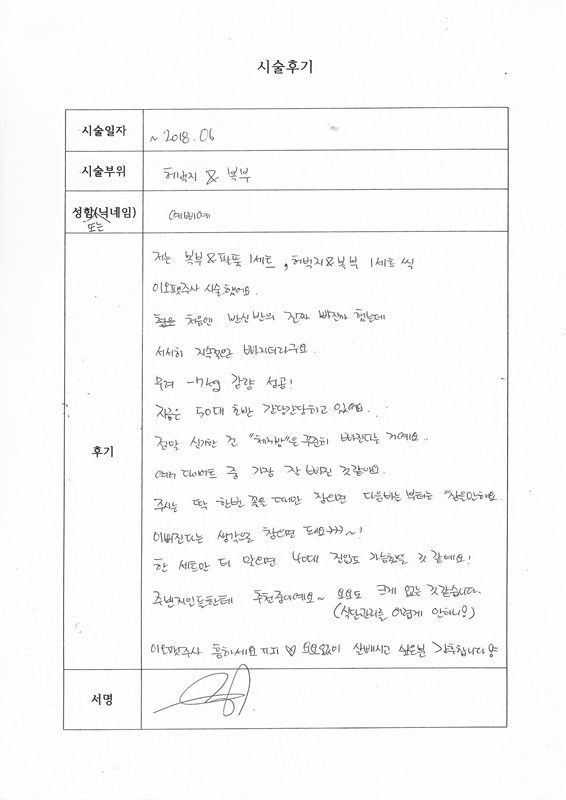 시술후기
시술일자
~ 2018.06
시술부위
허벅지 & 복부
성함(닉네임)
또는
예삐예
후기
저는 복부&팔뚝 1세트, 허벅지&복부 1세트 씩
이오팻주사 시술했어요.
처음엔 반신반의 진짜 빠진까 했는데
서서히 지속적으로 빠지더라구요.
무려 -7kg 감량 성공!
지금은 50대 초반 간당간당하고 있어요.
정말 신기한 건 "체지방"은 꾸준히 빠진다는 거예요..
여러 다이어트 중 가장 잘 빠진 것 같아요.
주사는 딱 한번 꽂을 때만 참으면 다음바늘 부터는 참을만해요.
이뻐진다는 생각으로 참으면 돼요>>>~!
한 세트만 더 맞으면 40대 진입도 가능했을 것 같네요!
주변지인들한테 추천중이예요~ 요요도 크게 없는 것 같습니다.
(식단관리를 어렵게 안하니용)
이오팻주사 흥하세요 ㅠㅠ ♡ 요요없이 살빼시고 싶은분 강추합니다 용
서명